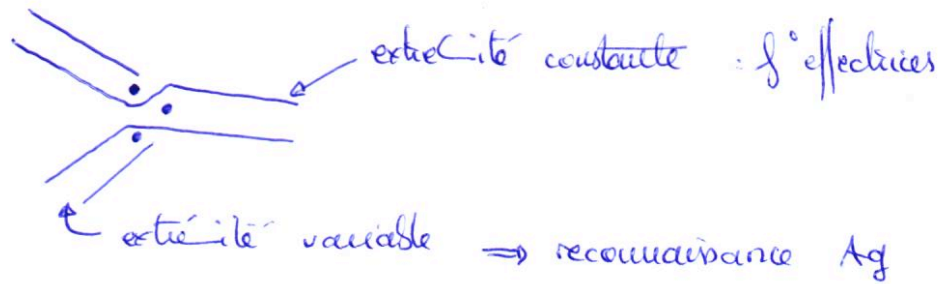 extrémité constante : f° effectrices
extrémité variable ⇒ reconnaissance Ag